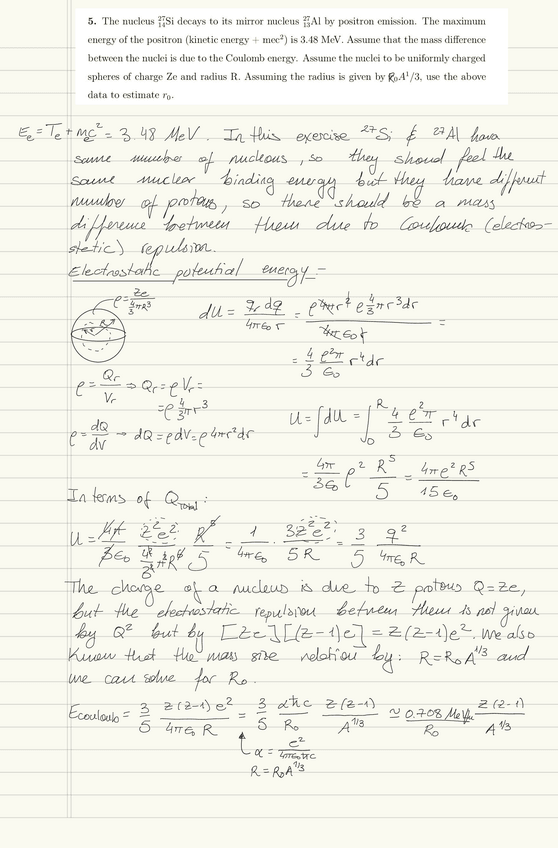 5. The nucleus ²⁷₁₄Si decays to its mirror nucleus ²⁷₁₃Al by positron emission. The maximum
energy of the positron (kinetic energy + mec²) is 3.48 MeV. Assume that the mass difference
between the nuclei is due to the Coulomb energy. Assume the nuclei to be uniformly charged
spheres of charge Ze and radius R. Assuming the radius is given by R₀A¹/3, use the above
data to estimate r₀.
Eₑ = Tₑ + mₑc² = 3.48 MeV. In this exercise ²⁷Si & ²⁷Al have
same number of nucleons, so they shoud feel the
same nuclear binding energy but they have different
number of protons, so there should be a mass
difference between them due to Coulomb (electros-
static) repulsion.
Electrostatic potential energy –
ρ = Ze / (4/3 πR³)
dU = qr dq / 4πε₀ r = ρ 4πr² ρ 4/3 πr³ dr / 4πε₀ r =
= 4/3 ρ²π/ε₀ r⁴dr
ρ = Qr/Vr ⇒ Qr = ρVr =
= ρ 4/3 πr³
ρ = dQ/dV → dQ = ρdV = ρ4πr²dr
U = ∫dU = ∫₀ᴿ 4/3 ρ²π/ε₀ r⁴dr
= 4π/3ε₀ ρ² R⁵/5 = 4πρ²R⁵/15ε₀
In terms of Qtotal:
U = 4π/3ε₀ Z²e²/(4²/3² π²R⁶) R⁵/5 = 1/4πε₀ · 3Z²e²/5R = 3/5 q²/4πε₀R
The charge of a nucleus is due to Z protons Q=Ze,
but the electrostatic repulsion between them is not given
by Q² but by [Ze][(Z-1)e] = Z(Z-1)e². We also
know that the mass size relation by: R=R₀A^1/3 and
we can solve for R₀.
Ecoulomb = 3/5 Z(Z-1)e²/4πε₀R = 3/5 αħc/R₀ Z(Z-1)/A^1/3 ≃ 0.708 MeV/R₀ Z(Z-1)/A^1/3
α = e²/4πε₀ħc
R = R₀A^1/3